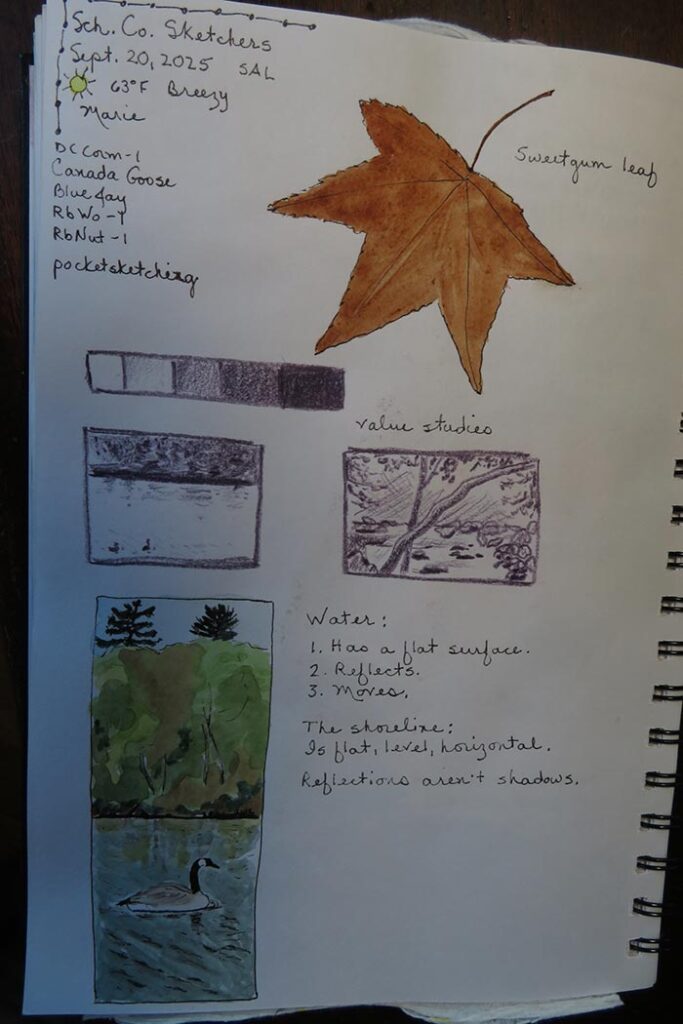 Sch. Co. Sketchers
Sept. 20, 2025 SAL
63°F Breezy
Marie
DCCorm-1
Canada Goose
Blue Jay
RbWo-1
RbNut-1
pocketsketching
Sweetgum leaf
value studies
Water:
1. Has a flat surface.
2. Reflects.
3. Moves.
The shoreline:
Is flat, level, horizontal.
Reflections aren't shadows.